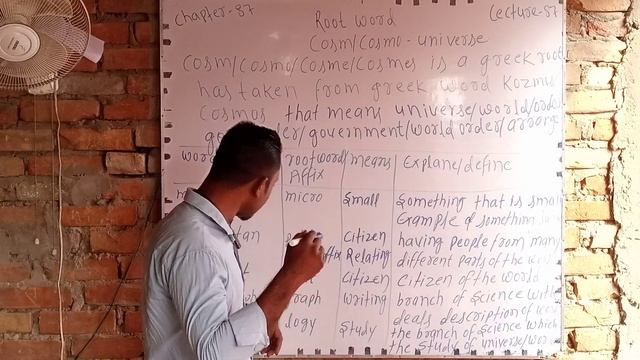 Chapter-87 Root word Lecture-87
Cosm/Cosmo-universe
Cosm/Cosmo/Cosme/Cosmes is a greek root
has taken from greek word Kozmos
Cosmos that means universe/world/order
der/government/world order/arrange
word rootword/Affix means Explane/define
micro Small Something that is small
Example of something
tan Citizen having people from many
ffix Relating different parts of the
Citizen Citizen of the world
raph writing branch of science
deals description of
logy Study the branch of science which
the study of universe